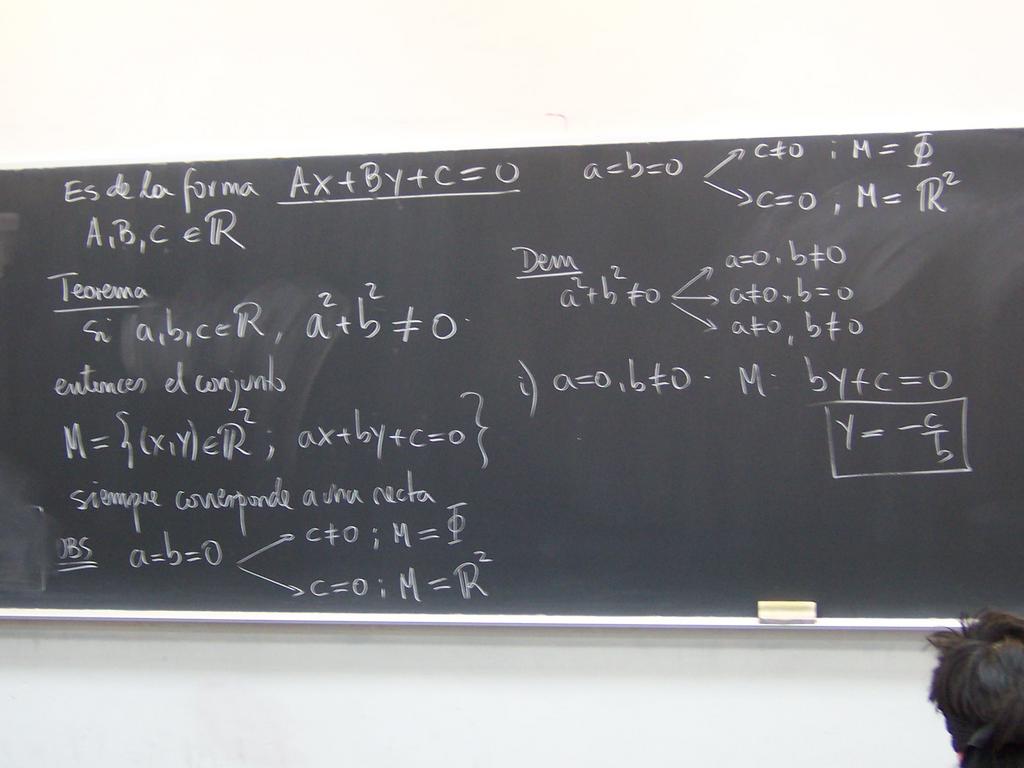 Es de la forma Ax+By+C=0
A,B,C ∈ ℝ
Teorema
Si a,b,c ∈ ℝ, a²+b² ≠ 0.
entonces el conjunto
M = {(x,y) ∈ ℝ² ; ax+by+c=0}
siempre corresponde a una recta
OBS a=b=0
c≠0 ; M = Φ
c=0 ; M = ℝ²
a=b=0
c≠0 ; M = Φ
c=0 ; M = ℝ²
Dem
a²+b² ≠ 0
a=0, b≠0
a≠0, b=0
a≠0, b≠0
i) a=0, b≠0. M: by+c=0
y = -c/b